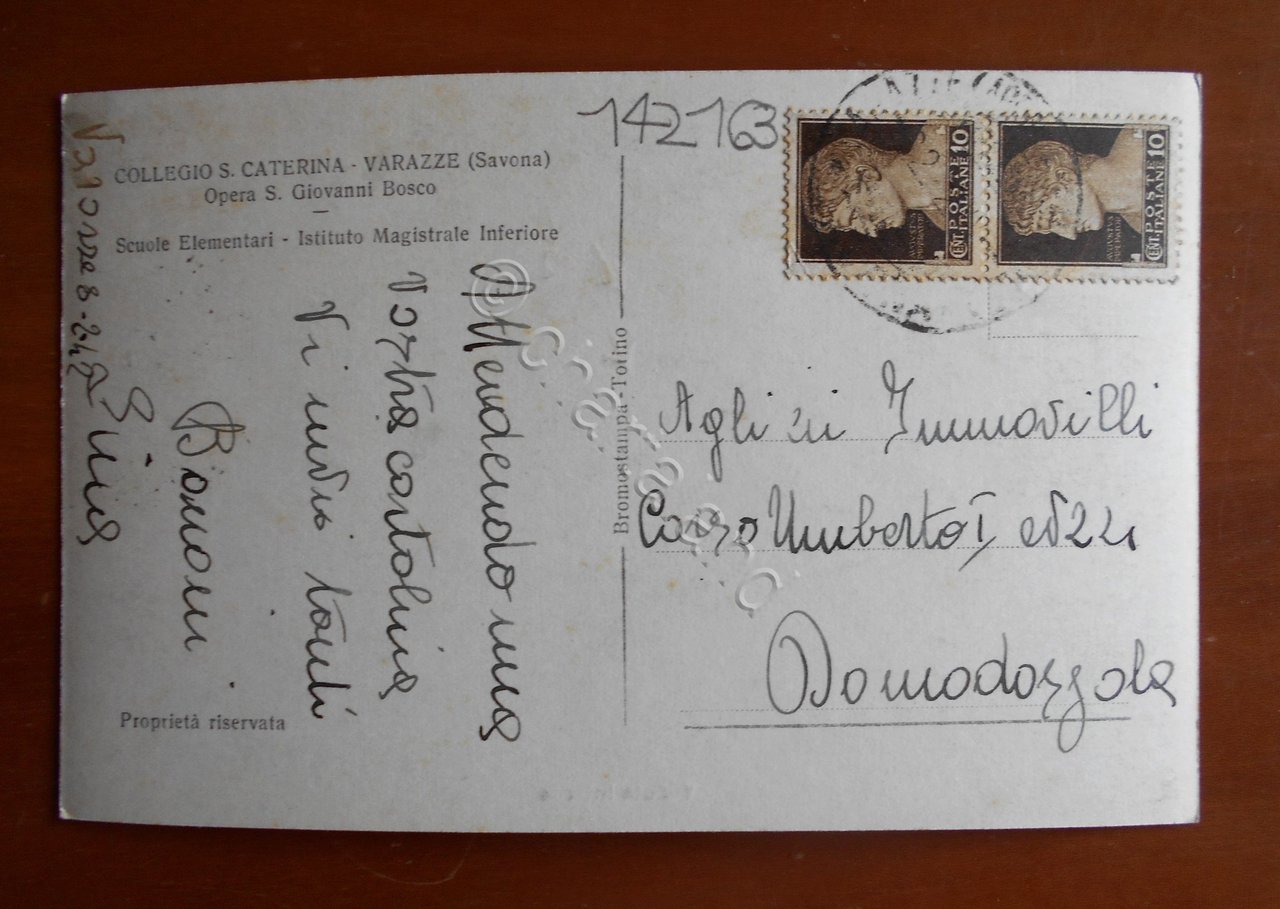 142163
COLLEGIO S. CATERINA - VARAZZE (Savona)
Opera S. Giovanni Bosco
Scuole Elementari - Istituto Magistrale Inferiore
Attendendo una
vostra cartolina
Vi invio tanti
Bacioni
Lina
Varazze 8-2-42
Proprietà riservata
Bromostampa - Torino
CENT. 10 POSTE ITALIANE
CENT. 10 POSTE ITALIANE
Agli zii Immovilli
Corso Umberto I, N 22
Domodossola